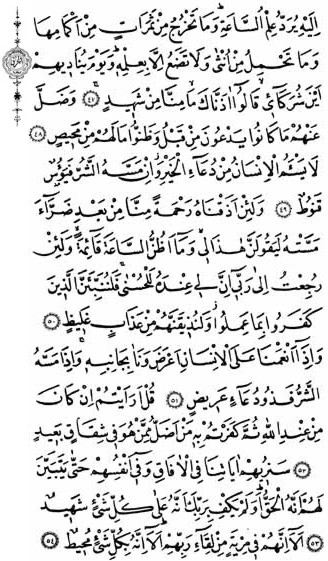 اِلَيْهِ يُرَدُّ عِلْمُ السَّاعَةِ وَمَا تَخْرُجُ مِنْ ثَمَرَاتٍ مِنْ اَكْمَامِهَا
وَمَا تَحْمِلُ مِنْ اُنْثٰى وَلَا تَضَعُ اِلَّا بِعِلْمِهِ وَيَوْمَ يُنَادِيهِمْ
اَيْنَ شُرَكَاۤئِى قَالُوا اٰذَنَّاكَ مَا مِنَّا مِنْ شَهِيدٍ ﴿٤٧﴾ وَضَلَّ
عَنْهُمْ مَا كَانُوا يَدْعُونَ مِنْ قَبْلُ وَظَنُّوا مَا لَهُمْ مِنْ مَحِيصٍ ﴿٤٨﴾
لَا يَسْـَٔمُ الْاِنْسَانُ مِنْ دُعَاۤءِ الْخَيْرِ وَاِنْ مَسَّهُ الشَّرُّ فَيَؤُسٌ
قَنُوطٌ ﴿٤٩﴾ وَلَئِنْ اَذَقْنَاهُ رَحْمَةً مِنَّا مِنْ بَعْدِ ضَرَّاۤءَ
مَسَّتْهُ لَيَقُولَنَّ هٰذَا لِى وَمَا اَظُنُّ السَّاعَةَ قَاۤئِمَةً وَلَئِنْ
رُجِعْتُ اِلٰى رَبِّى اِنَّ لِى عِنْدَهُ لَلْحُسْنٰى فَلَنُنَبِّئَنَّ الَّذِينَ
كَفَرُوا بِمَا عَمِلُوا وَلَنُذِيقَنَّهُمْ مِنْ عَذَابٍ غَلِيظٍ ﴿٥٠﴾
وَاِذَا اَنْعَمْنَا عَلَى الْاِنْسَانِ اَعْرَضَ وَنَاٰ بِجَانِبِهِ وَاِذَا مَسَّهُ
الشَّرُّ فَذُو دُعَاۤءٍ عَرِيضٍ ﴿٥١﴾ قُلْ اَرَاَيْتُمْ اِنْ كَانَ
مِنْ عِنْدِ اللّٰهِ ثُمَّ كَفَرْتُمْ بِهِ مَنْ اَضَلُّ مِمَّنْ هُوَ فِى شِقَاقٍ بَعِيدٍ
﴿٥٢﴾ سَنُرِيهِمْ اٰيَاتِنَا فِى الْاٰفَاقِ وَفِى اَنْفُسِهِمْ حَتّٰى يَتَبَيَّنَ
لَهُمْ اَنَّهُ الْحَقُّ اَوَلَمْ يَكْفِ بِرَبِّكَ اَنَّهُ عَلٰى كُلِّ شَىْءٍ شَهِيدٌ
﴿٥٣﴾ اَلَا اِنَّهُمْ فِى مِرْيَةٍ مِنْ لِقَاۤءِ رَبِّهِمْ اَلَا اِنَّهُ بِكُلِّ شَىْءٍ مُحِيطٌ ﴿٥٤﴾